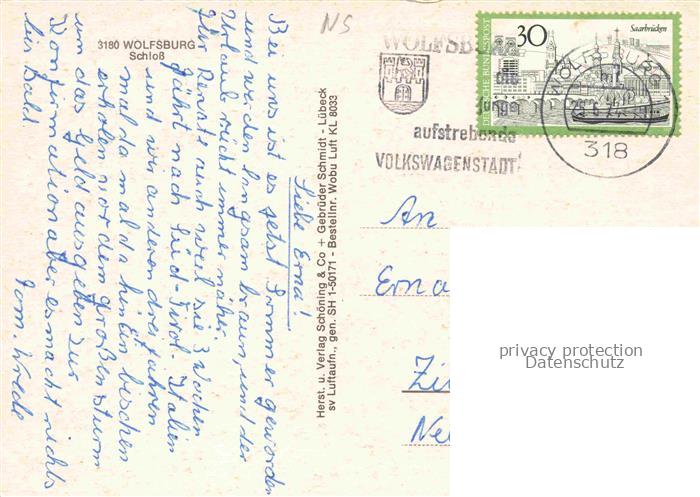 NS
3180 WOLFSBURG
Schloß
Liebe Erna!
Bei uns ist es jetzt Sommer geworden
und wir werden langsam braun, und der
Urlaub rückt immer näher.
Für Renate auch weil sie 3 Wochen
fährt nach Süd-Tirol-Italien
und wir anderen drei fahren
mal da mal da hin ein bischen
erholen vor dem großen Sturm
um das Geld ausgeben zur
Konfirmation aber es macht nichts
bis bald
Fam. Wrede
Herst. u. Verlag Schöning & Co + Gebrüder Schmidt - Lübeck
sv Luftaufn., gen. SH 1-50171 - Bestellnr. Wobu Luft KL 8033
WOLFSBURG
die
junge
aufstrebende
VOLKSWAGENSTADT
30
Saarbrücken
DEUTSCHE BUNDESPOST
WOLFSBURG
318
An
Erna
privacy protection
Datenschutz